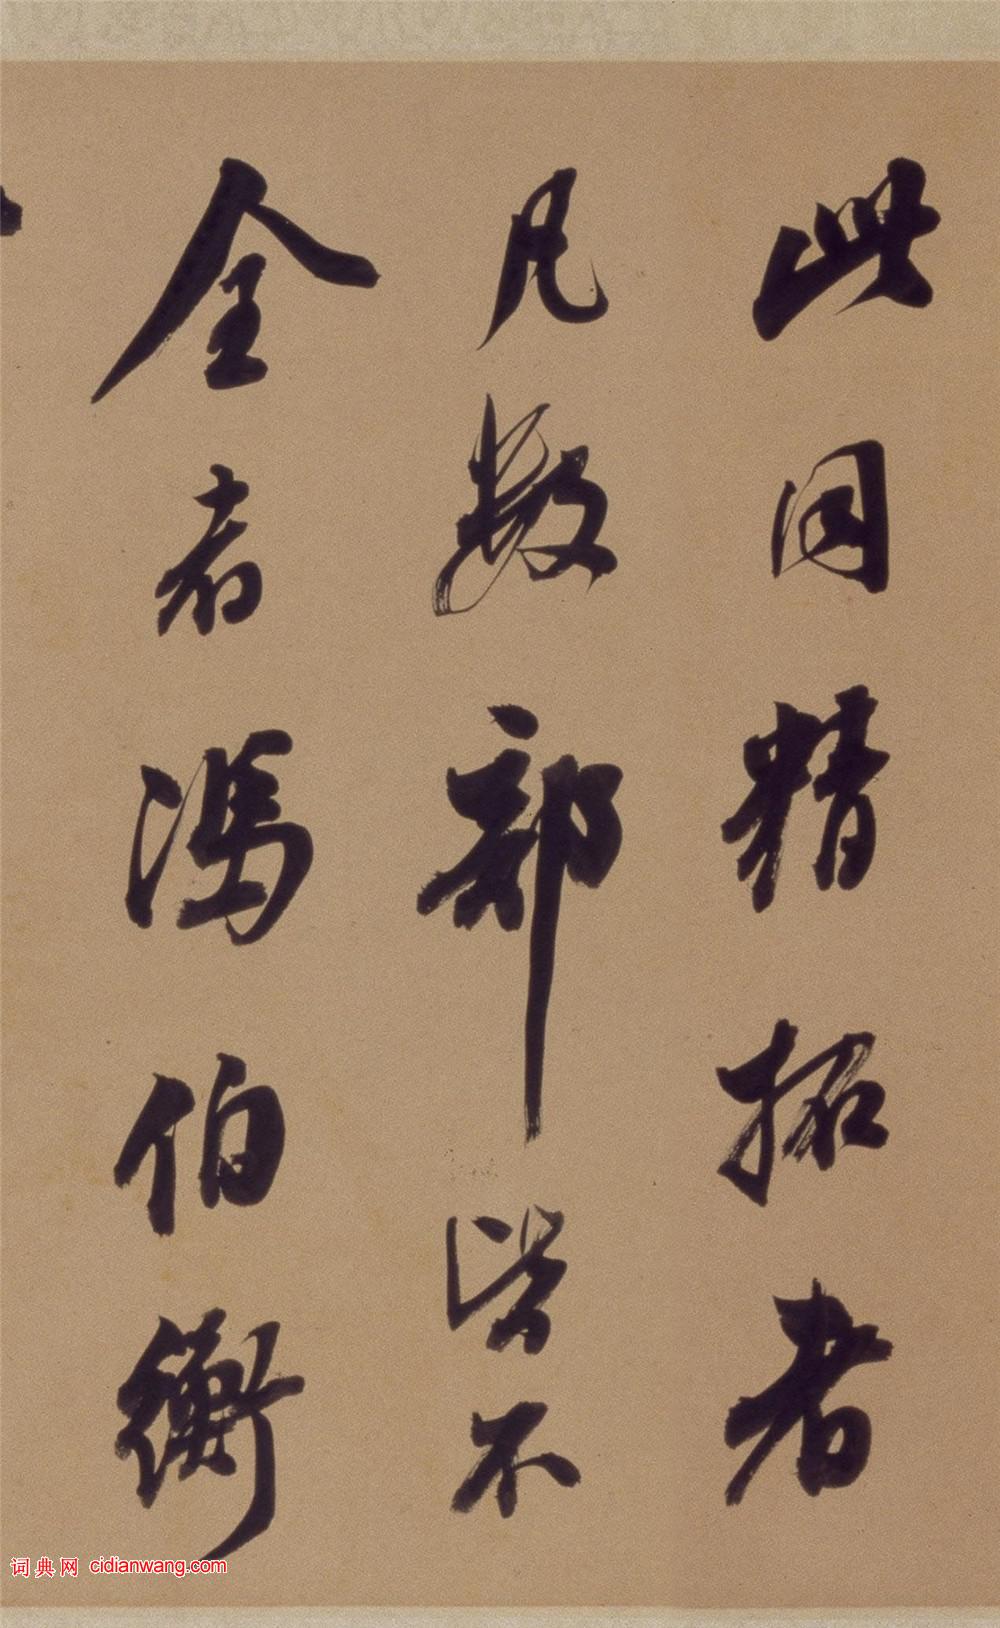 此同精拓者
凡数部皆不
全者馮伯衡
词典网 cidianwang.com